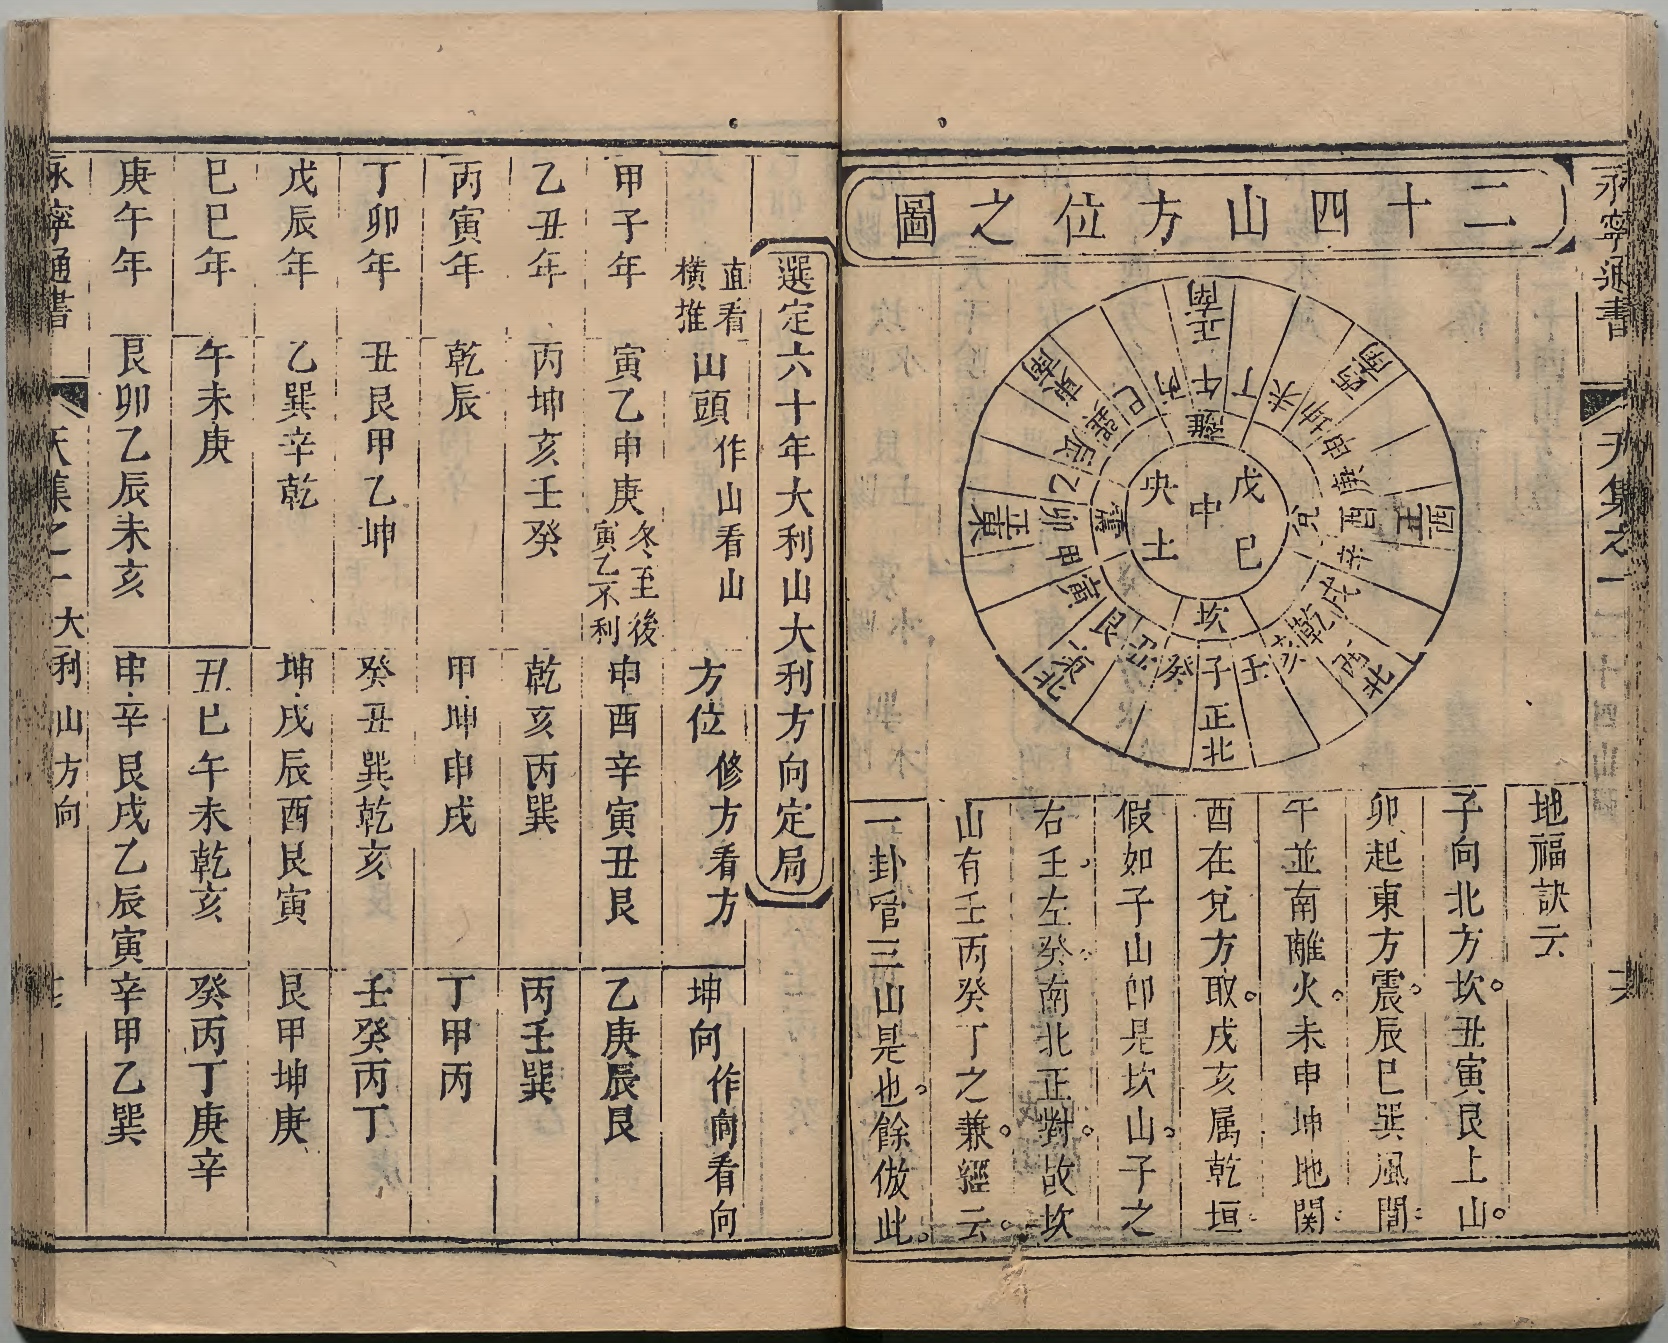 永寧通書
天集之一
二十四山方位之圖
正南
西南
正西
西北
正北
東北
正東
東南
丙午丁
未坤申
庚酉辛
戌乾亥
壬子癸
丑艮寅
甲卯乙
辰巽巳
離
兌
坎
震
戊己
中
央土
地福訣云
子向北方坎丑寅艮上山
卯起東方震辰巳巽風間
午並南離火未申坤地関
酉在兌方取戌亥属乾垣
假如子山即是坎山子之
右壬左癸南北正對故坎
山有壬丙癸丁之兼經云
一卦管三山是也餘倣此
選定六十年大利山大利方向定局
直看
橫推
山頭 作山看山
方位 修方看方
坤向 作向看向
甲子年 寅乙申庚 冬至後寅乙不利 申酉辛寅丑艮 乙庚辰艮
乙丑年 丙坤亥壬癸 乾亥丙巽 丙壬巽
丙寅年 乾辰 甲坤申戌 丁甲丙
丁卯年 丑艮甲乙坤 癸丑巽乾亥 壬癸丙丁
戊辰年 乙巽辛乾 坤戌辰酉艮寅 艮甲坤庚
巳巳年 午未庚 丑巳午未乾亥 癸丙丁庚辛
庚午年 艮卯乙辰未亥 申辛艮戌乙辰寅 辛甲乙巽
永寧通書
天集之一
大利山方向